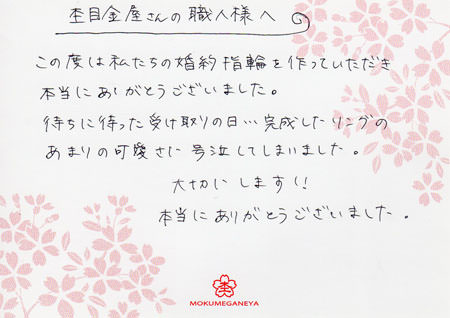 杢目金屋さんの職人様へ
この度は私たちの婚約指輪を作っていただき
本当にありがとうございました。
待ちに待った受け取りの日…完成したリングの
あまりの可愛さに号泣してしまいました。
大切にします!!
本当にありがとうございました。
杢
MOKUMEGANEYA